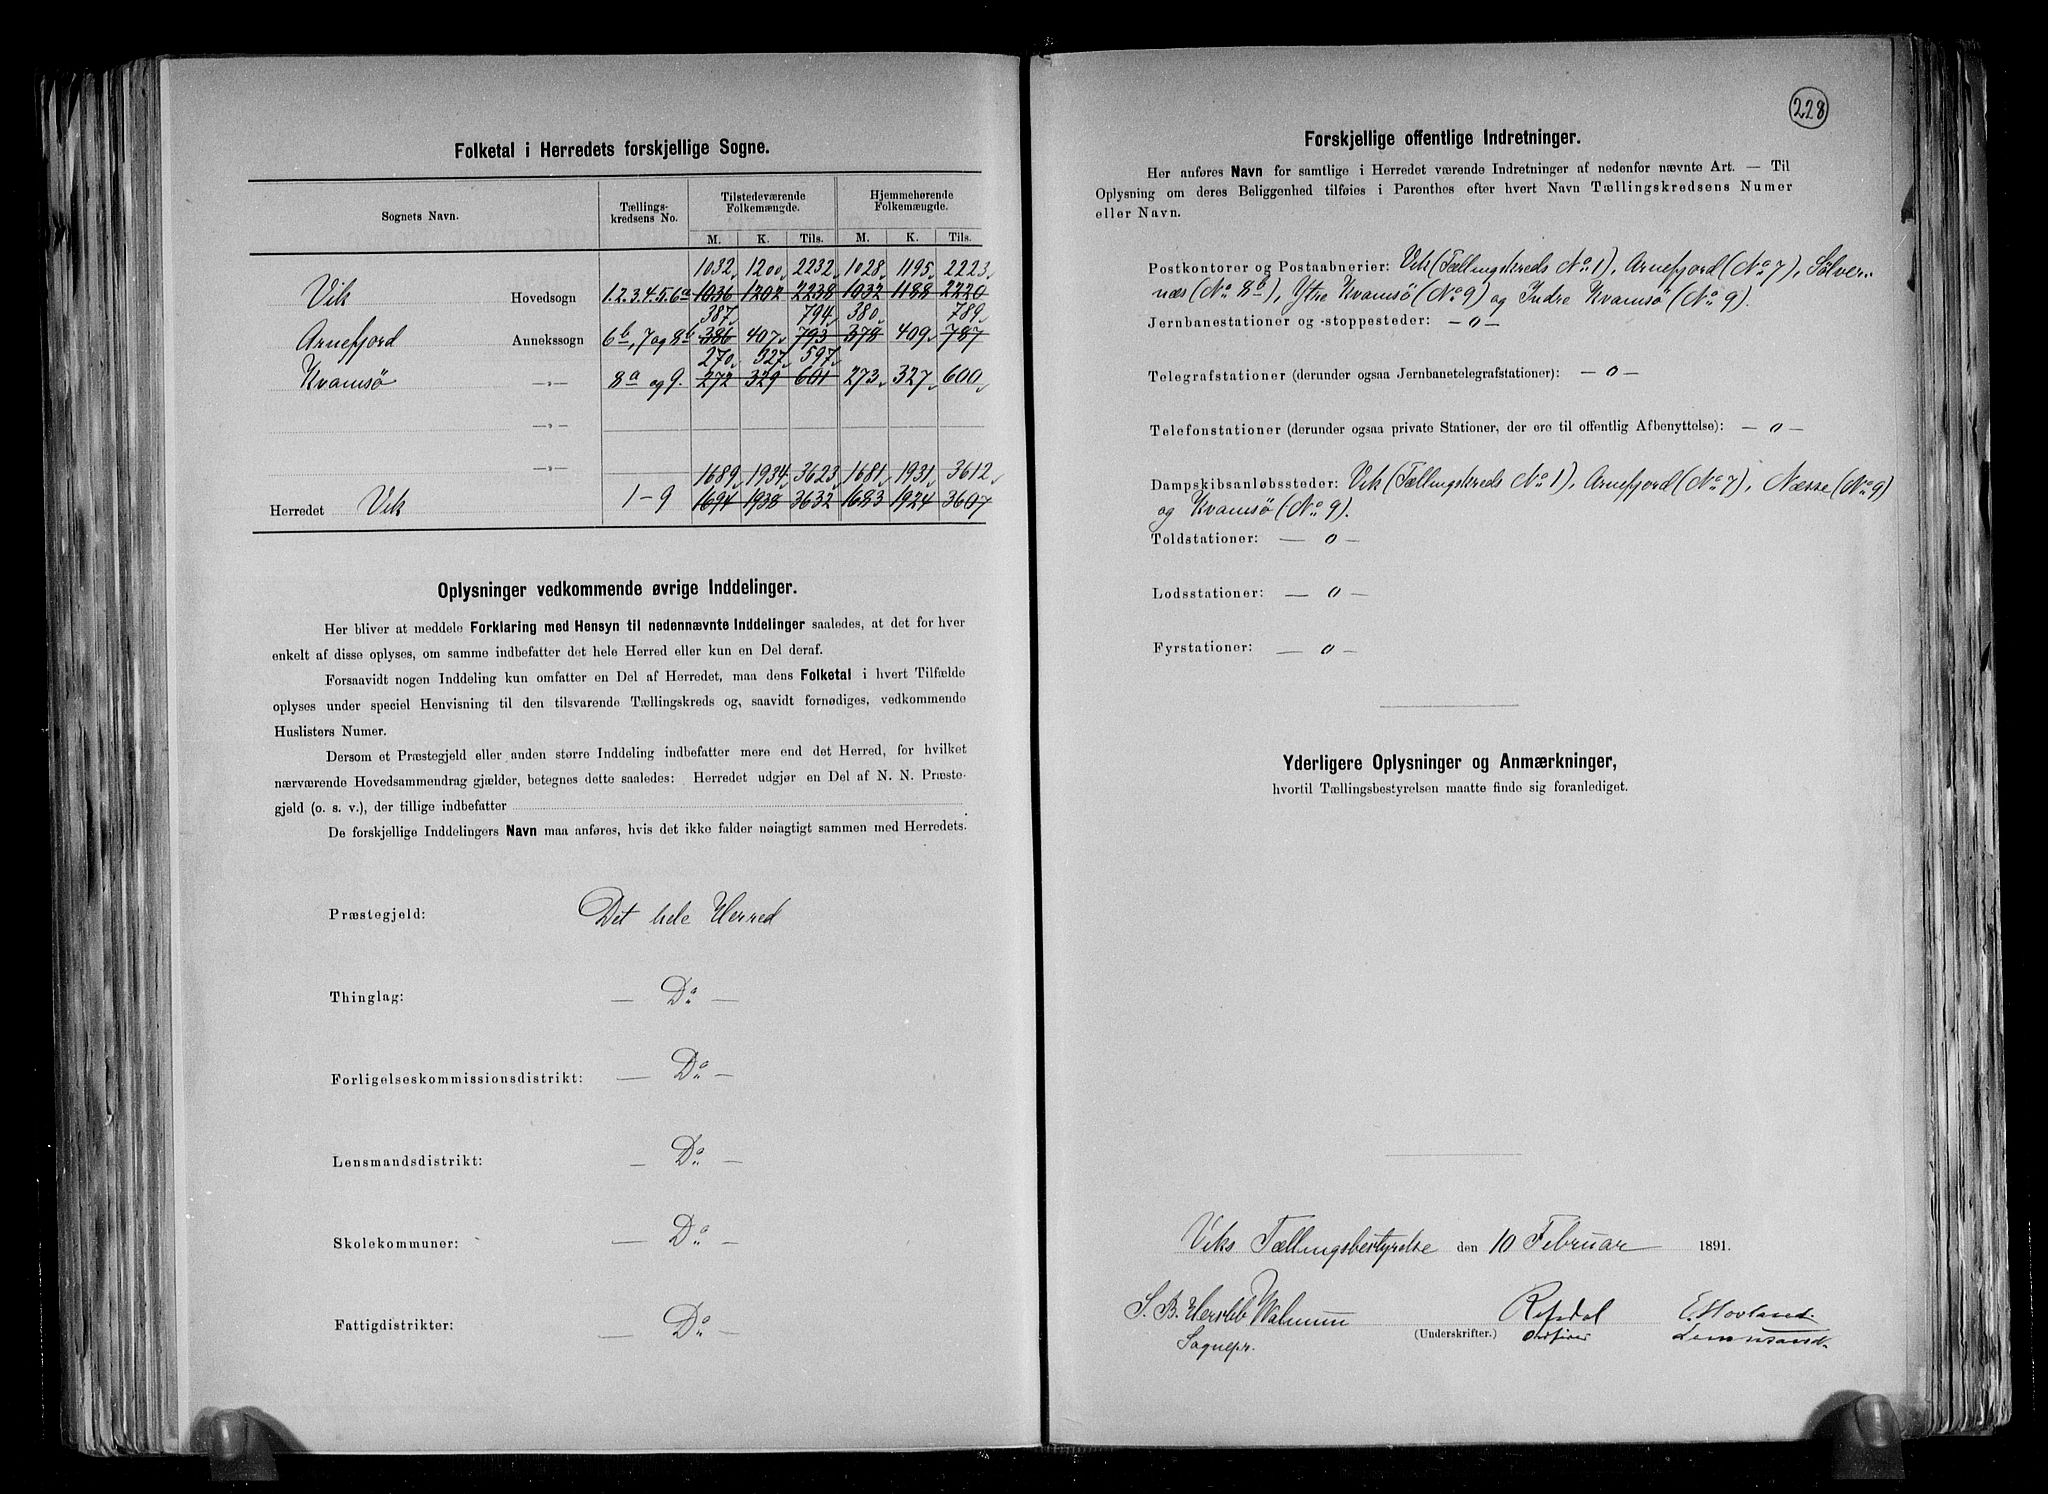 Folketal i Herredets forskjellige Sogne.
Sognets Navn. Tællings-kredsens No. Tilstedeværende Folkemængde. Hjemmehørende Folkemængde.
M. K. Tils. M. K. Tils.
1032 1200 2232 1028 1195 2223
Vik Hovedsogn 1.2.3.4.5.6a 1036 1202 2238 1032 1188 2220
387 794 380 789
Arnefjord Annekssogn 6b, 7 og 8b 386 407 793 378 409 787
270 327 597
Kvamsø —„— 8a og 9. 272 329 601 273 327 600
—„—
—„—
1689 1934 3623 1681 1931 3612
Herredet Vik 1-9 1694 1938 3632 1683 1924 3607
Oplysninger vedkommende øvrige Inddelinger.
Her bliver at meddele Forklaring med Hensyn til nedennævnte Inddelinger saaledes, at det for hver
enkelt af disse oplyses, om samme indbefatter det hele Herred eller kun en Del deraf.
Forsaavidt nogen Inddeling kun omfatter en Del af Herredet, maa dens Folketal i hvert Tilfælde
oplyses under speciel Henvisning til den tilsvarende Tællingskreds og, saavidt fornødiges, vedkommende
Huslisters Numer.
Dersom et Præstegjeld eller anden større Inddeling indbefatter mere end det Herred, for hvilket
nærværende Hovedsammendrag gjælder, betegnes dette saaledes: Herredet udgjør en Del af N. N. Præste-
gjeld (o. s. v.), der tillige indbefatter
De forskjellige Inddelingers Navn maa anføres, hvis det ikke falder nøiagtigt sammen med Herredets.
Præstegjeld: Det hele Herred
Thinglag: — Do —
Forligelseskommissionsdistrikt: — Do —
Lensmandsdistrikt: — Do —
Skolekommuner: — Do —
Fattigdistrikter: — Do —
228
Forskjellige offentlige Indretninger.
Her anføres Navn for samtlige i Herredet værende Indretninger af nedenfor nævnte Art. — Til
Oplysning om deres Beliggenhed tilføies i Parenthes efter hvert Navn Tællingskredsens Numer
eller Navn.
Postkontorer og Postaabnerier: Vik (Tællingskreds No 1), Arnefjord (No 7), Sølver-
næs (No 8b), Ytre Kvamsø (No 9) og Indre Kvamsø (No 9).
Jernbanestationer og -stoppesteder: — 0 —
Telegrafstationer (derunder ogsaa Jernbanetelegrafstationer): — 0 —
Telefonstationer (derunder ogsaa private Stationer, der ere til offentlig Afbenyttelse): — 0 —
Dampskibsanløbssteder: Vik (Tællingskreds No 1), Arnefjord (No 7), Næsse (No 9)
og Kvamsø (No 9).
Toldstationer: — 0 —
Lodsstationer: — 0 —
Fyrstationer: — 0 —
Yderligere Oplysninger og Anmærkninger,
hvortil Tællingsbestyrelsen maatte finde sig foranlediget.
Viks Tællingsbestyrelse den 10 Februar 1891.
S. B. Hersleb Walnum Refsdal E. Hovland
Sognepr. (Underskrifter.) Ordfører Lensmand